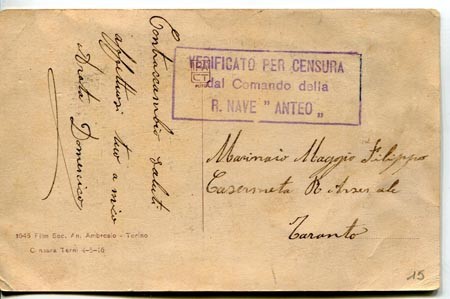 Contraccambio saluti
affettuosi tuo amico
Arata Domenico
VERIFICATO PER CENSURA
dal Comando della
R. NAVE " ANTEO "
Marinaio Maggio Filippo
Casermeta R Arsenale
Taranto
1045 Film Soc. An. Ambrosio - Torino
Censura Torino 4-5-16
15